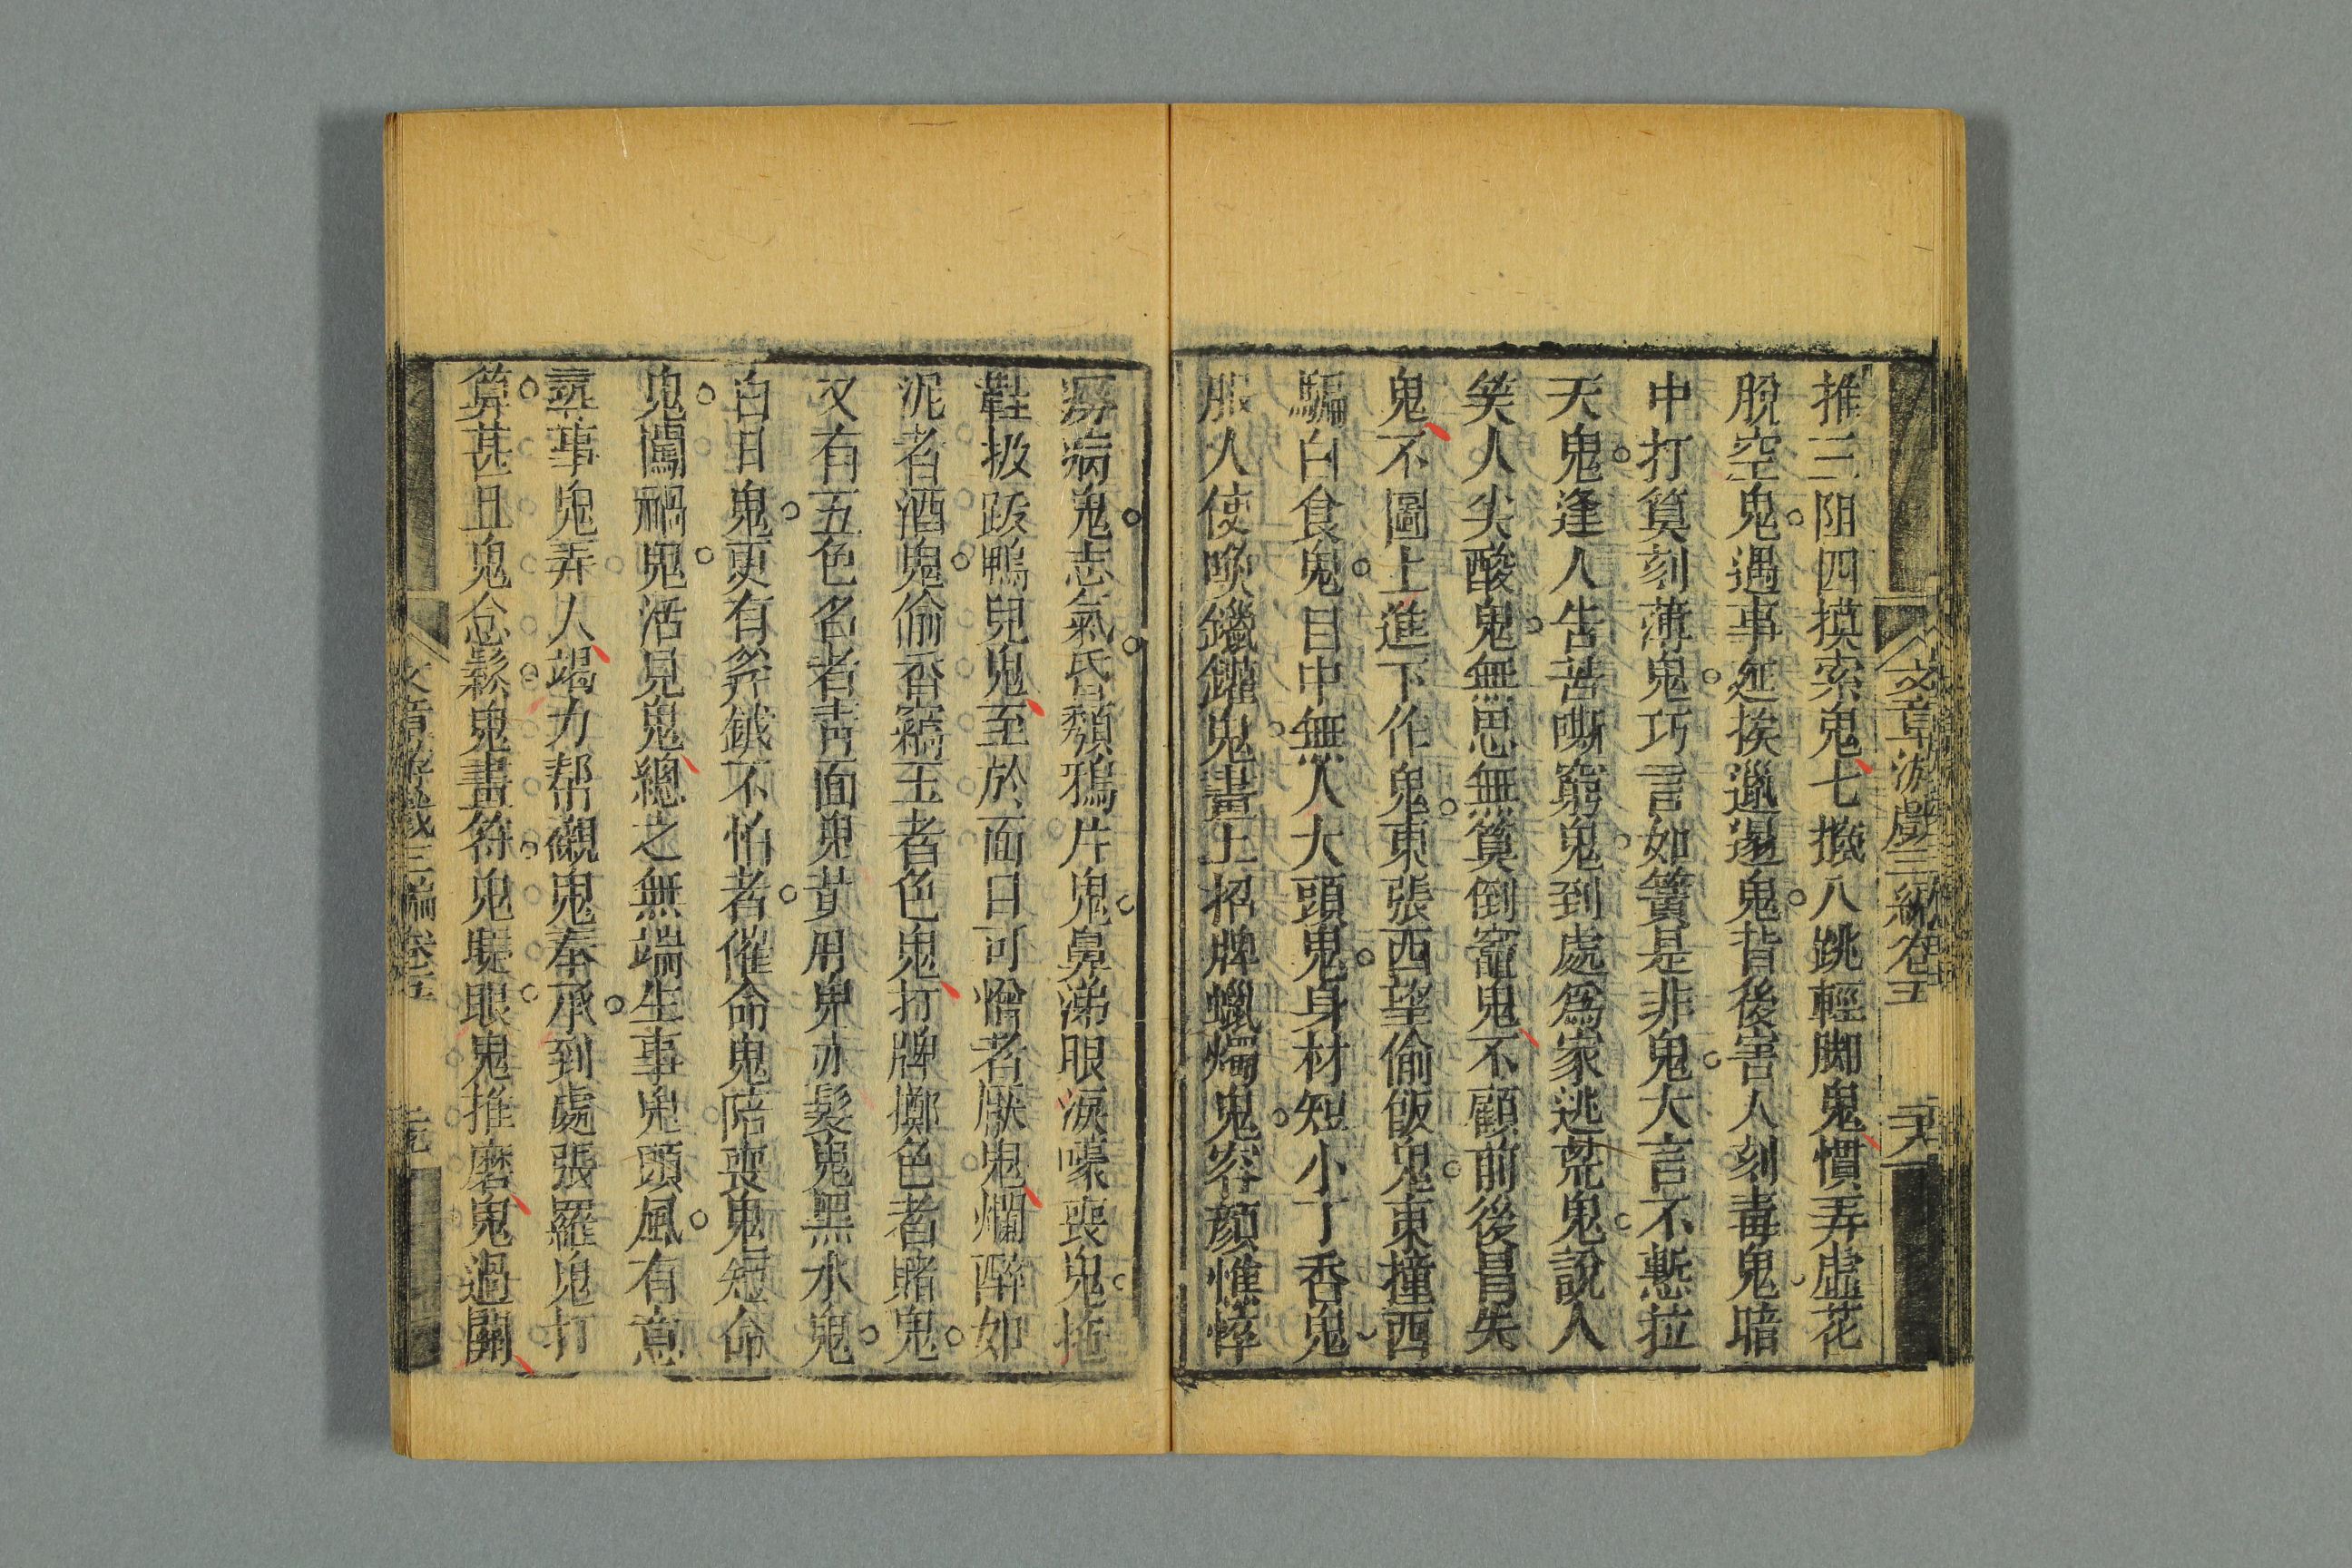 文章游戲三編卷五
推三阻四摸索鬼七搬八跳輕脚鬼慣弄虛花
脫空鬼遇事延挨邋遢鬼背後害人刻毒鬼暗
中打算刻薄鬼巧言如簧是非鬼大言不慙拉
天鬼逢人告苦嘶窮鬼到處爲家逃荒鬼說人
笑人尖酸鬼無思無算倒竈鬼不顧前後冒失
鬼不圖上進下作鬼東張西望偷飯鬼東撞西
騙白食鬼目中無人大頭鬼身材短小丁香鬼
服人使喚鑞鑵鬼畫土招牌蠟燭鬼容顏憔悴
癆病鬼志氣昏頹鴉片鬼鼻涕眼淚嚎喪鬼拖
鞋扱跋鴨兒鬼至於面目可憎者厭鬼爛醉如
泥者酒鬼偷香竊玉者色鬼打牌擲色者賭鬼
又有五色名者靑面鬼黃胖鬼赤髮鬼黑水鬼
白日鬼更有斧鉞不怕者催命鬼陪喪鬼短命
鬼闖禍鬼活見鬼總之無端生事鬼頭風有意
尋事鬼弄人竭力帮襯鬼奉承到處張羅鬼打
算甚丑鬼忩鬆鬼畫符鬼䀹眼鬼推磨鬼過關
文章游戲三編卷五